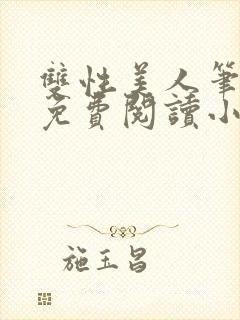 雙性美人筆
免費閱讀小
施玉昌